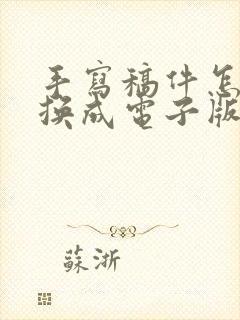 手寫稿件怎
換成電子版
蘇浙